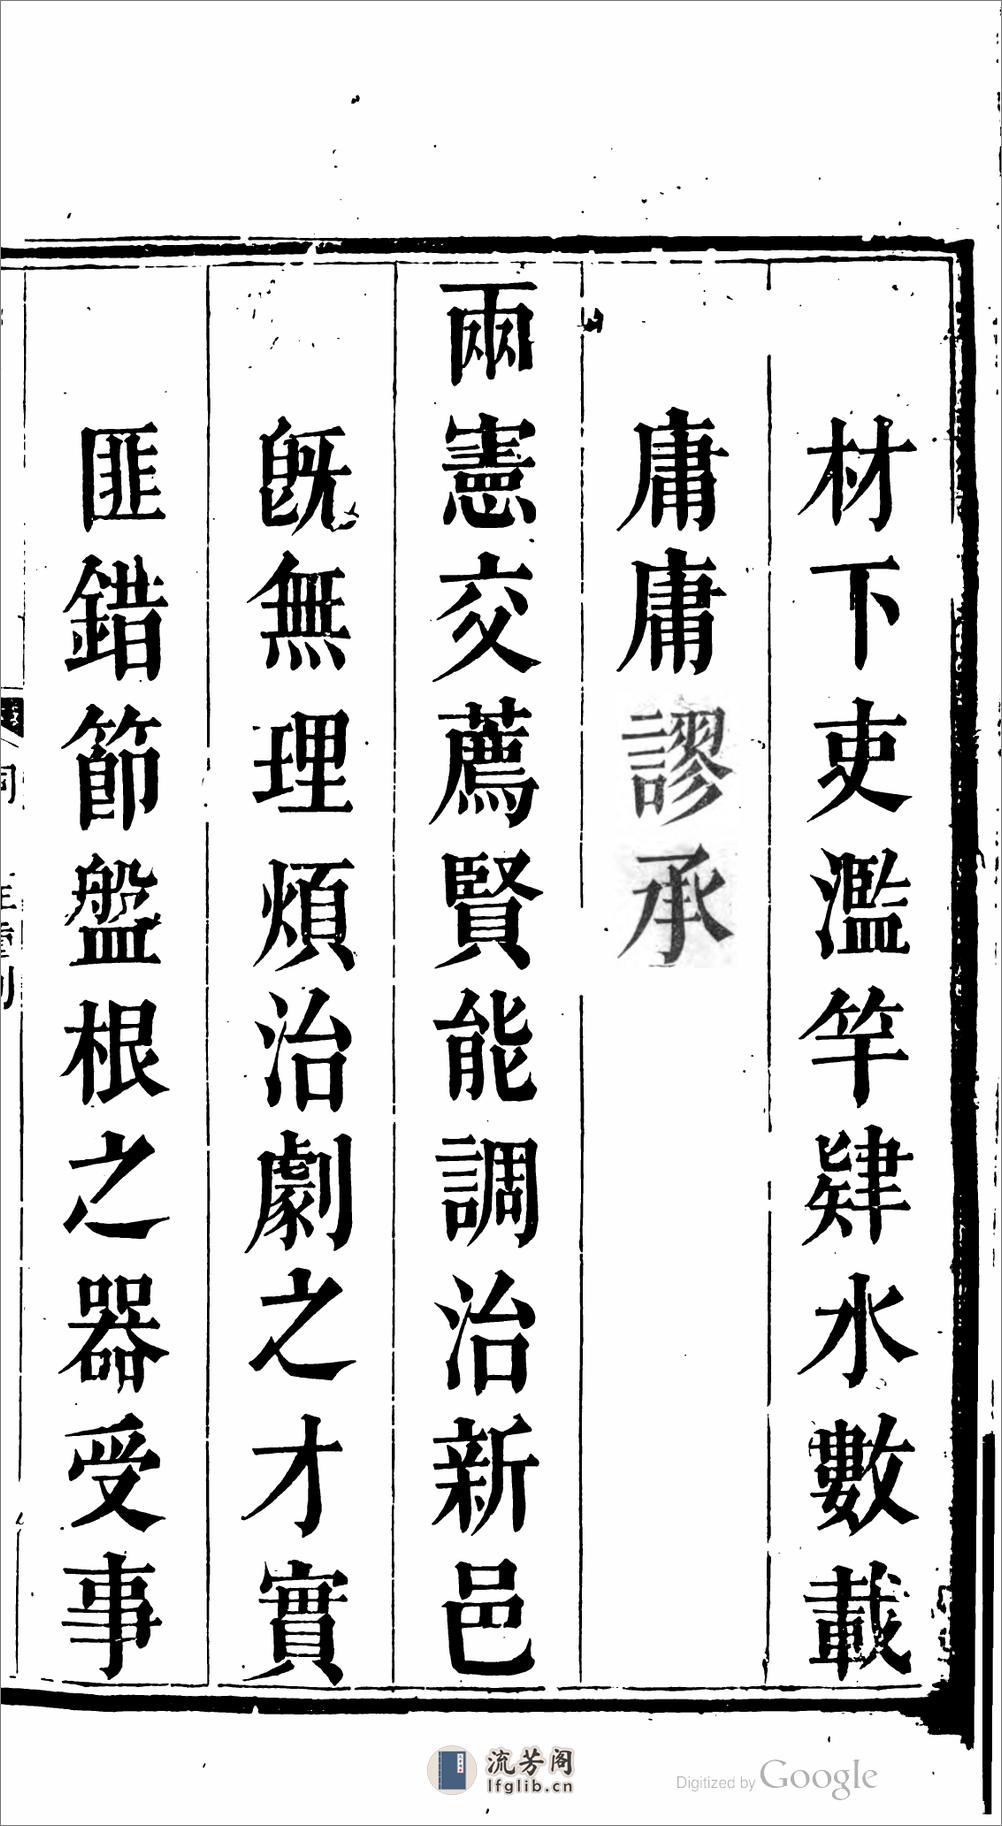 材下吏濫竽肄水數載
庸庸謬承
兩憲交薦賢能調治新邑
旣無理煩治劇之才實
匪錯節盤根之器受事
流芳阁
lfglib.cn
Digitized by Google